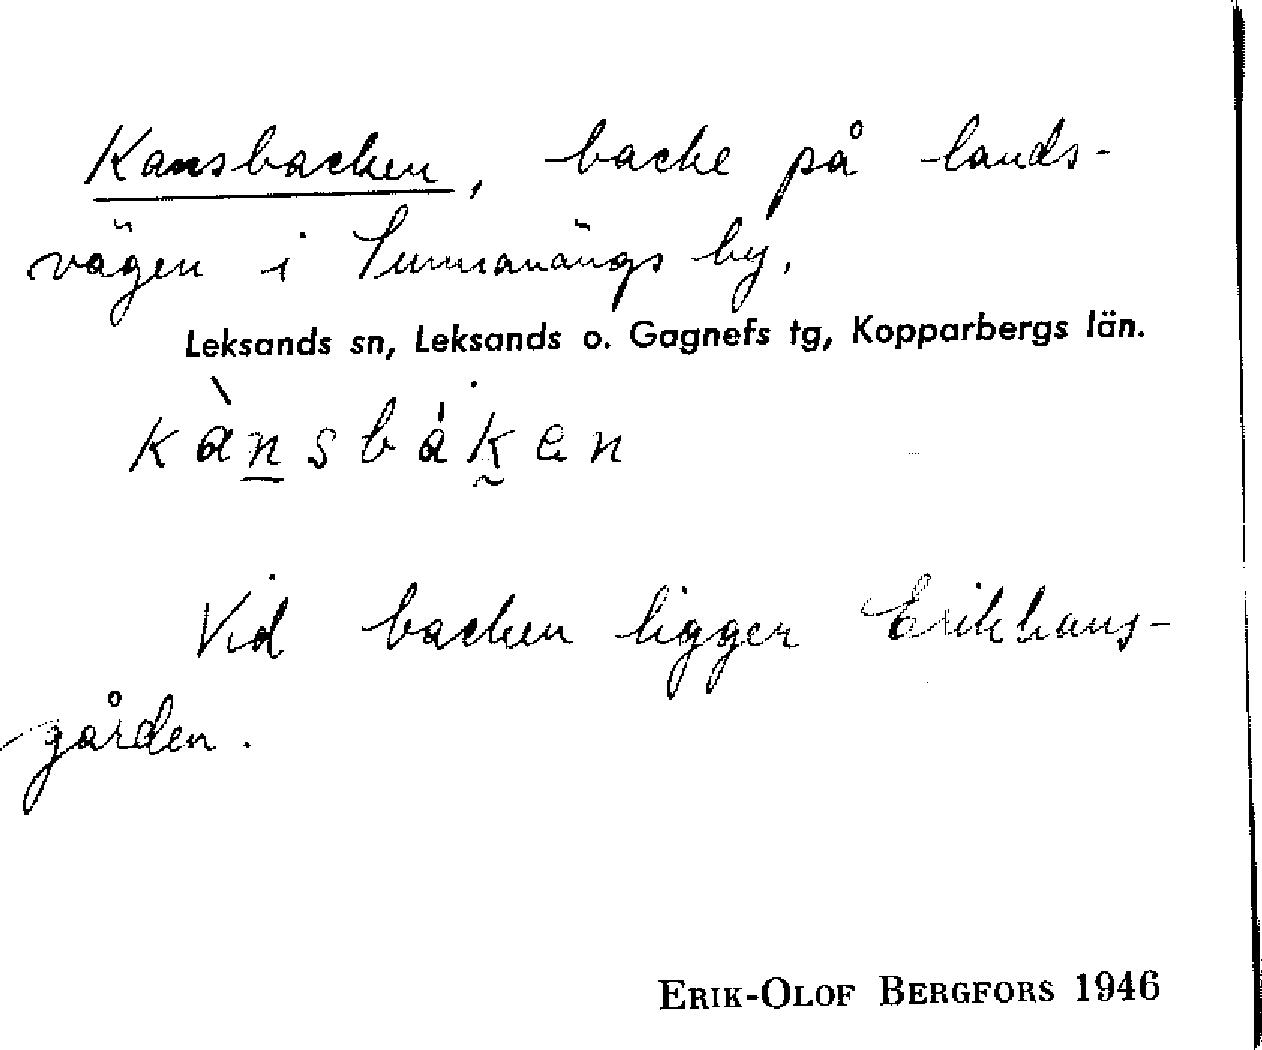 Kansbacken, backe på lands-
vägen i Sunnanängs by.
Leksands sn, Leksands o. Gagnefs tg, Kopparbergs län.
kànsbáken
Vid backen ligger Erikhans-
gården.
ERIK-OLOF BERGFORS 1946